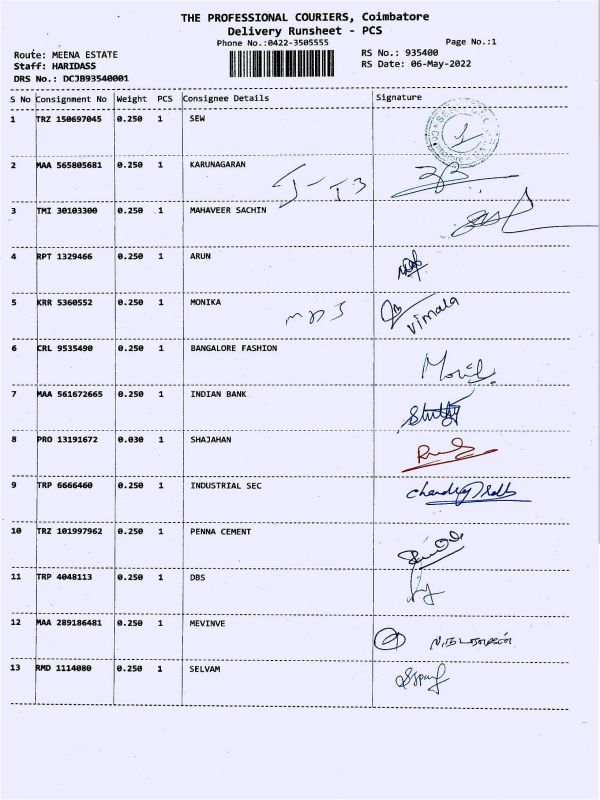 THE PROFESSIONAL COURIERS, Coimbatore
Delivery Runsheet - PCS
Phone No.:0422-3505555
Page No.:1
Route: MEENA ESTATE
RS No.: 935400
Staff: HARIDASS
RS Date: 06-May-2022
DRS No.: DCJB93540001
S No Consignment No Weight PCS Consignee Details Signature
1 TRZ 150697045 0.250 1 SEW
2 MAA 565805681 0.250 1 KARUNAGARAN
3 TMI 30103300 0.250 1 MAHAVEER SACHIN
4 RPT 1329466 0.250 1 ARUN
5 KRR 5360552 0.250 1 MONIKA
Vimala
6 CRL 9535490 0.250 1 BANGALORE FASHION
7 MAA 561672665 0.250 1 INDIAN BANK
8 PRO 13191672 0.030 1 SHAJAHAN
9 TRP 6666460 0.250 1 INDUSTRIAL SEC
10 TRZ 101997962 0.250 1 PENNA CEMENT
11 TRP 4048113 0.250 1 DBS
12 MAA 289186481 0.250 1 MEVINVE
13 RMD 1114080 0.250 1 SELVAM